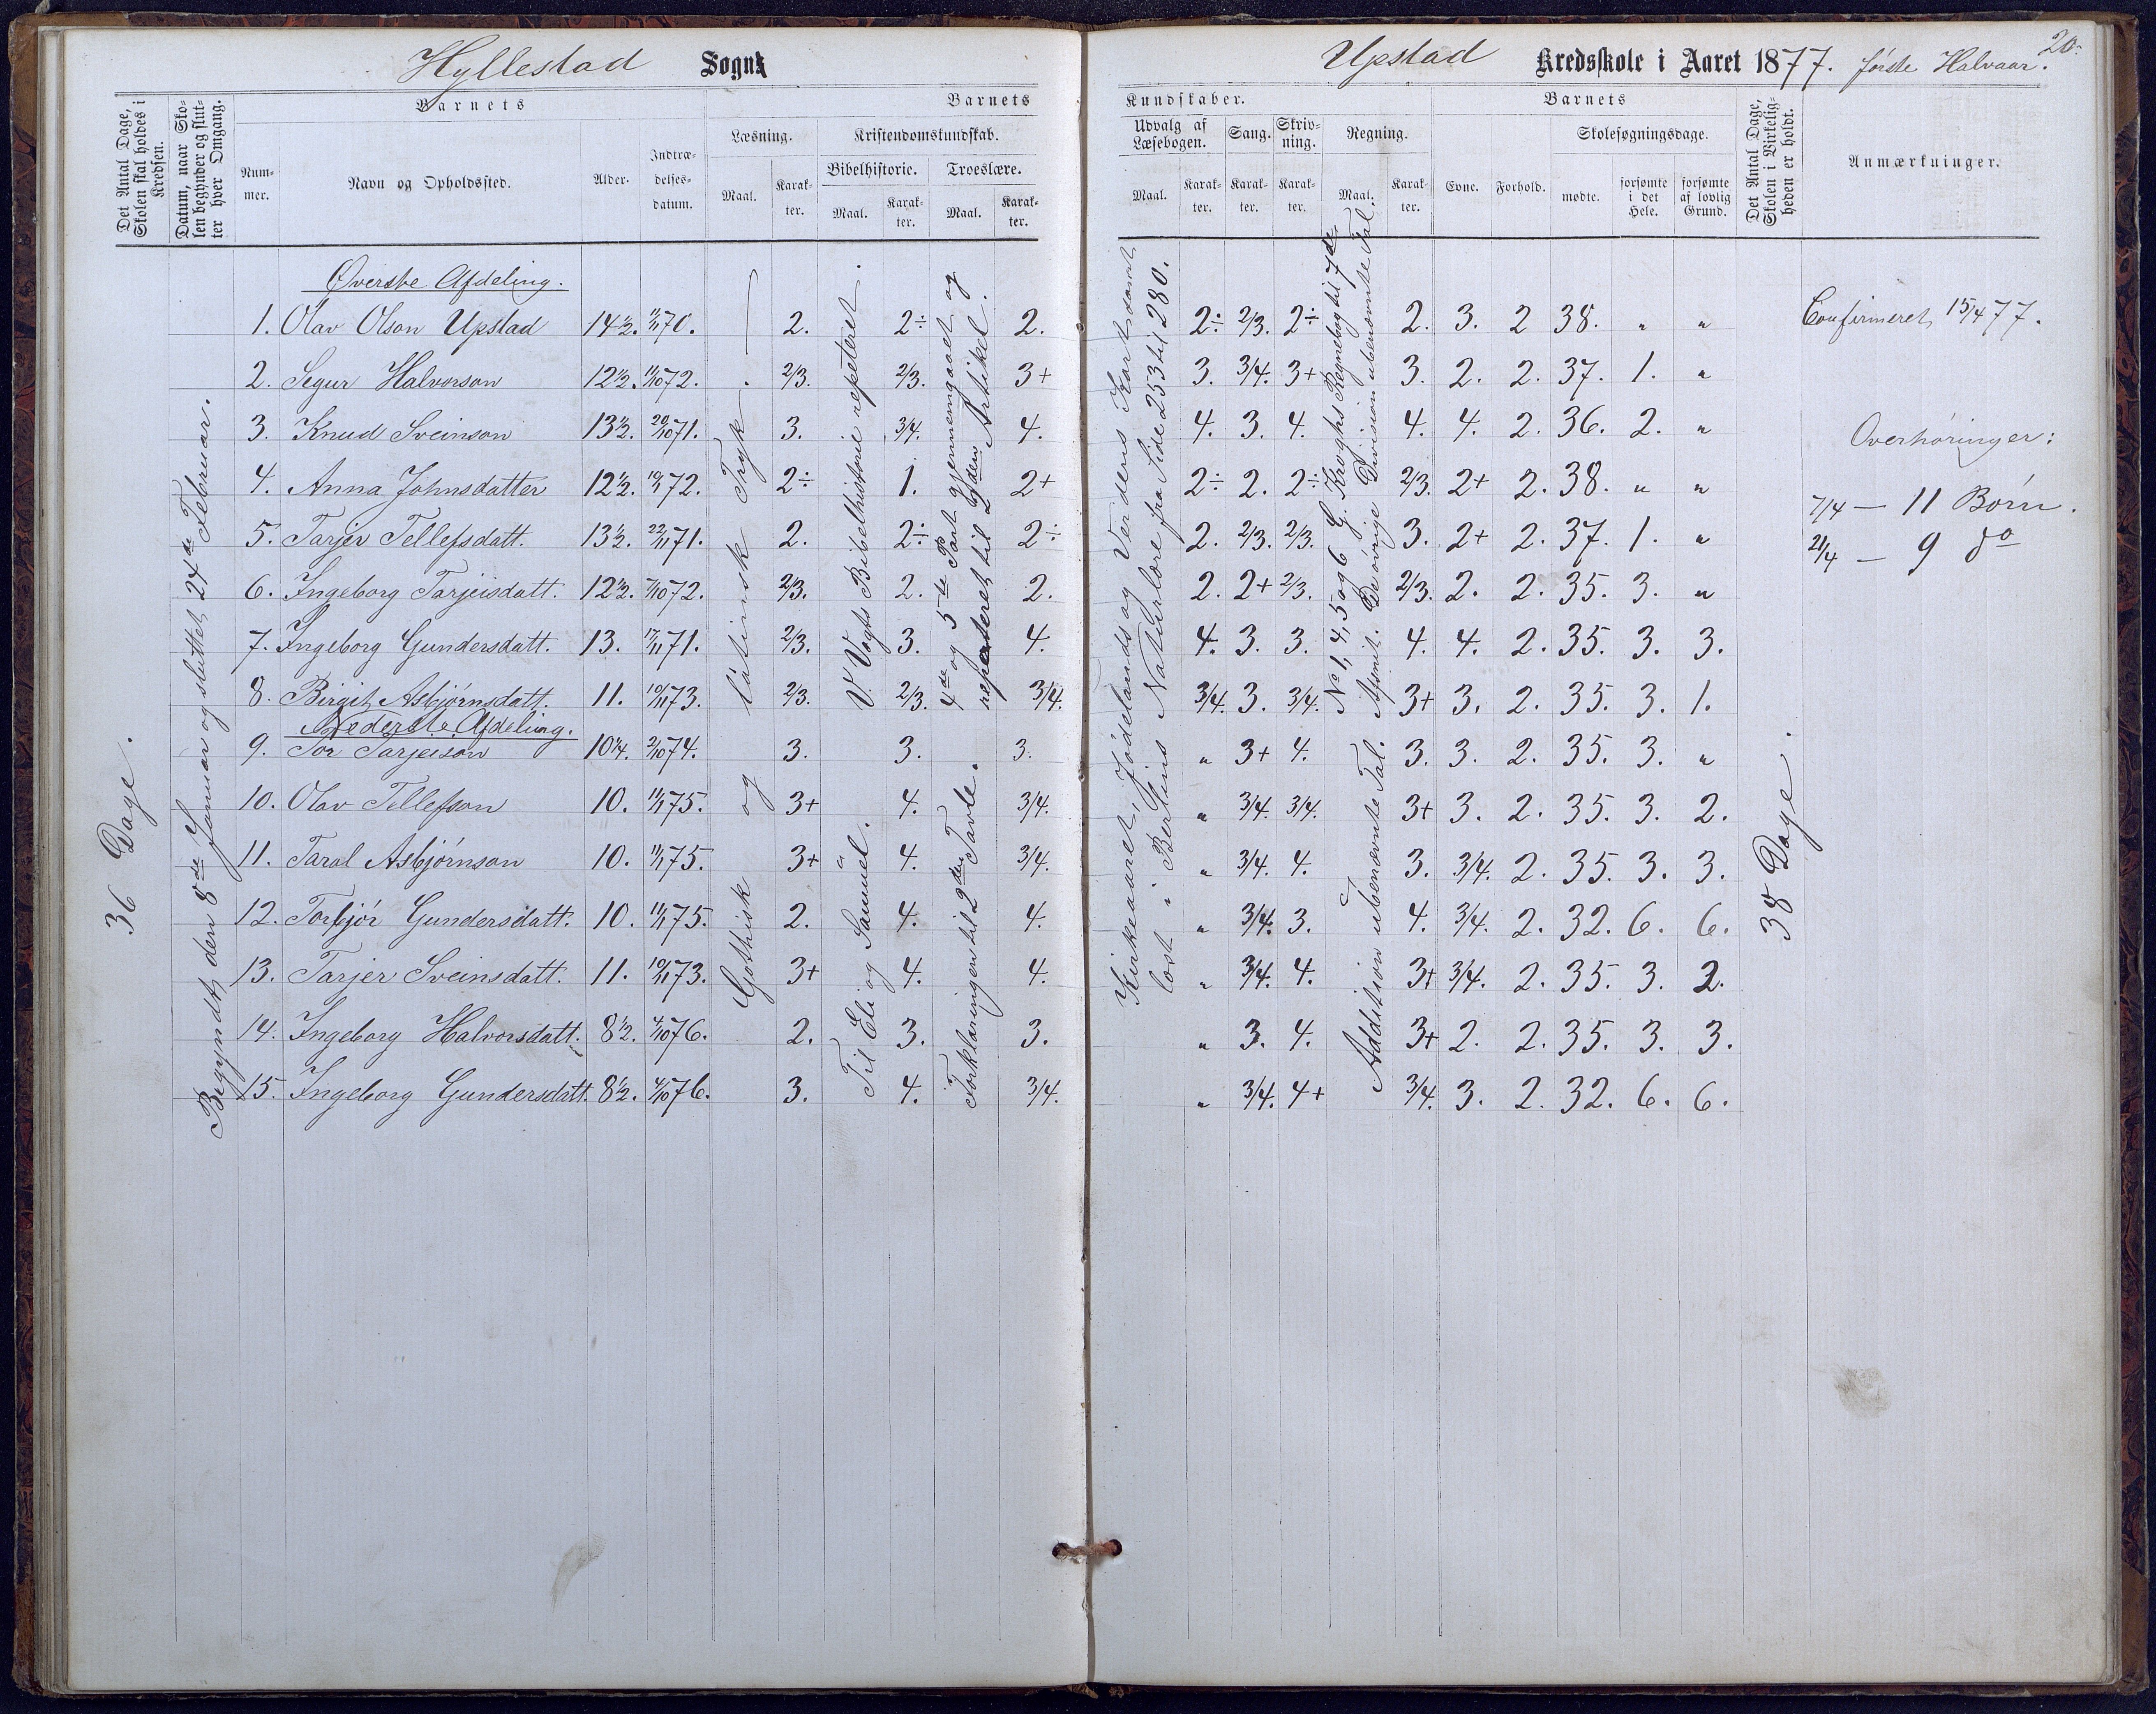 Hyllestad Sogn
Upstad Kredsskole i Aaret 1877. første Halvaar.
20.
Det Antal Dage, Skolen skal holdes i Kredsen.
Datum, naar Skolen begynder og slutter hver Omgang.
Barnets
Nummer.
Navn og Opholdssted.
Alder.
Indtrædelsesdatum.
Barnets
Læsning.
Maal.
Karakter.
Kristendomskundskab.
Bibelhistorie.
Maal.
Karakter.
Troeslære.
Maal.
Karakter.
Kundskaber.
Udvalg af Læsebogen.
Maal.
Karakter.
Sang.
Karakter.
Skrivning.
Karakter.
Regning.
Maal.
Karakter.
Barnets
Evne.
Forhold.
Skolesøgningsdage.
mødte.
forsømte i det Hele.
forsømte af lovlig Grund.
Det Antal Dage, Skolen i Virkeligheden er holdt.
Anmærkninger.
36 Dage.
Begyndt den 8de Januar og sluttet 24de Februar.
Gothisk og latinsk Tryk
V. Vogts Bibelhistorie repeteret.
Til Eli og Samuel.
4de og 5te Part gjennemgaaet og repeteret til 2den Artikel.
Forklaringen til 2den Tavle.
Kirkeaaret, Jødelands og Verdens Kort samt læst i Berlins Naturlære fra Side 253 til 280.
No 1, 4, 5 og 6 G. Kroghs Regnebog til 7de Afsnit. De øvrige Division ubenævnte Tal.
Addition ubenævnte Tal.
38 Dage.
Øverste Afdeling.
1. Olav Olson Upstad 14½. 11/1 70. 2. 2÷ 2. 2÷ 2/3. 2÷ 2. 3. 2 38. " " Confirmeret 15/4 77.
2. Segur Halvorson 12½. 11/10 72. 2/3. 2/3. 3+ 3. 3/4. 3+ 3. 2. 2. 37. 1. "
3. Knud Sveinson 13½. 20/10 71. 3. 3/4. 4. 4. 3. 4. 4. 4. 2. 36. 2. "
Overhøringer:
4. Anna Johnsdatter 12½. 19/1 72. 2÷ 1. 2+ 2÷ 2. 2÷ 2/3. 2+ 2. 38. " "
7/4 — 11 Børn.
5. Tarjer Tellefsdatt. 13½. 22/11 71. 2. 2÷ 2÷ 2. 2/3. 2/3. 3. 2+ 2. 37. 1. "
21/4 — 9 do
6. Ingeborg Tarjeisdatt. 12½. 7/10 72. 2/3. 2. 2. 2. 2+ 2/3. 2/3. 2. 2. 35. 3. "
7. Ingeborg Gundersdatt. 13. 17/11 71. 2/3. 3. 4. 4. 3. 3. 4. 4. 2. 35. 3. 3.
8. Birgit Asbjørnsdatt. 11. 10/11 73. 2/3. 2/3. 3/4. 3/4. 3. 3/4. 3+ 3. 2. 35. 3. 1.
Nederste Afdeling.
9. Tor Tarjeison 10¼. 2/10 74. 3. 3. 3. " 3+ 4. 3. 3. 2. 35. 3. "
10. Olav Tellefson 10. 11/1 75. 3+ 4. 3/4. " 3/4. 3/4. 3+ 3. 2. 35. 3. 2.
11. Taral Asbjørnson 10. 11/1 75. 3+ 4. 3/4. " 3/4. 4. 3. 3/4. 2. 35. 3. 3.
12. Torbjør Gundersdatt. 10. 11/1 75. 2. 4. 4. " 3/4. 3. 4. 3/4. 2. 32. 6. 6.
13. Tarjer Sveinsdatt. 11. 10/11 73. 3+ 4. 4. " 3/4. 4. 3+ 3/4. 2. 35. 3. 2.
14. Ingeborg Halvorsdatt. 8½. 4/10 76. 2. 3. 3. " 3. 4. 3+ 2. 2. 35. 3. 3.
15. Ingeborg Gundersdatt. 8½. 4/10 76. 3. 4. 3/4. " 3/4. 4+ 3/4. 3. 2. 32. 6. 6.